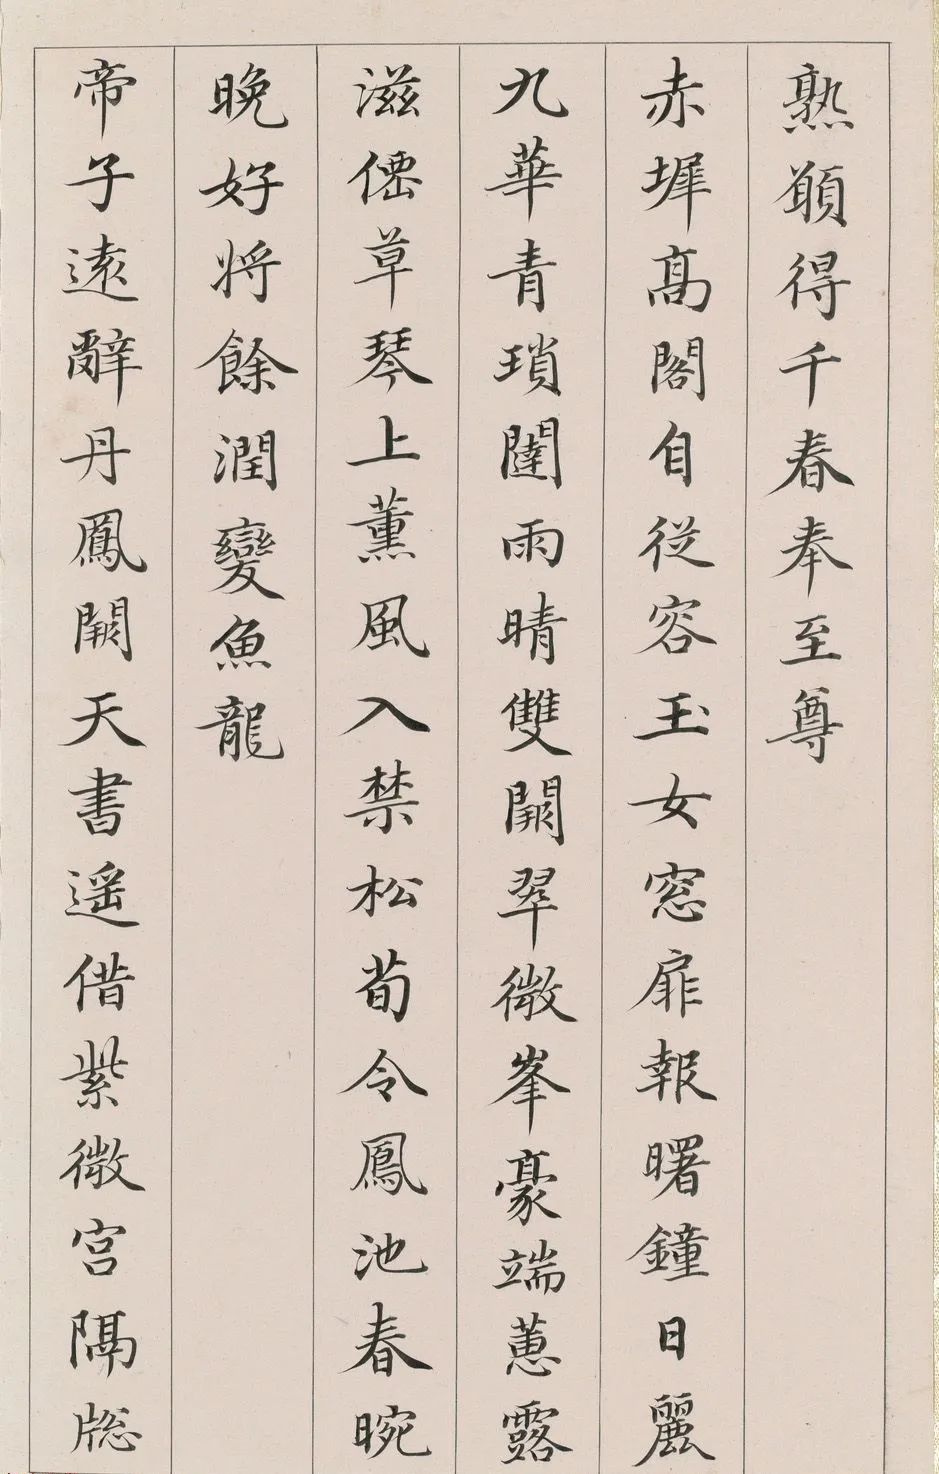 熟願得千春奉至尊
赤墀高閣自從容玉女窓扉報曙鐘日麗
九華青瑣闥雨晴雙闕翠微峯豪端蕙露
滋僊草琴上薰風入禁松荀令鳳池春晼
晚好將餘潤變魚龍
帝子遠辭丹鳳闕天書遥借紫微宮隔牕